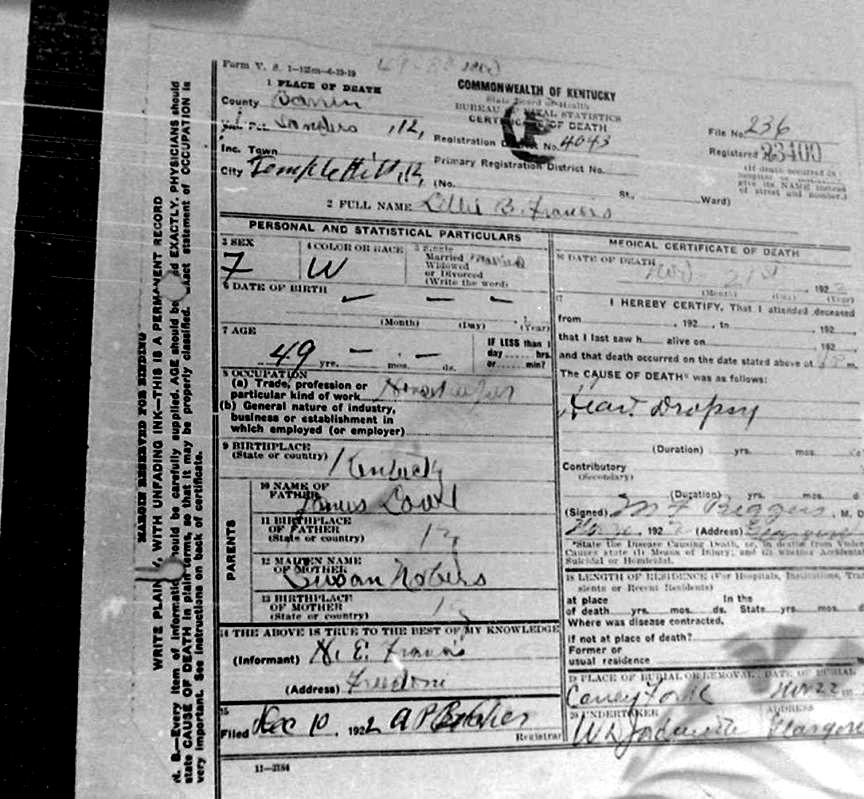 Form V. S. 1-
1 PLACE OF DEATH
COMMONWEALTH OF KENTUCKY
State Board of Health
BUREAU OF VITAL STATISTICS
CERTIFICATE OF DEATH
County Barren
Vot. Pct. Sanders
Registration District No. 4043
File No. 236
Inc. Town
Primary Registration District No.
Registered 23400
City Temple Hill
(No.
St.,
Ward)
(If death occurred in
hospital or
give its NAME instead
of street and number.)
2 FULL NAME Lellie B. Francis
PERSONAL AND STATISTICAL PARTICULARS
3 SEX
F
4 COLOR OR RACE
W
5 Single
Married
Widowed
or Divorced
(Write the word)
6 DATE OF BIRTH
(Month) (Day) (Year)
7 AGE
49 yrs. mos. ds.
IF LESS than 1
day hrs.
or min?
8 OCCUPATION
(a) Trade, profession or
particular kind of work Housekeeper
(b) General nature of industry,
business or establishment in
which employed (or employer)
9 BIRTHPLACE
(State or country) Kentucky
PARENTS
10 NAME OF
FATHER James
11 BIRTHPLACE
OF FATHER
(State or country) Ky
12 MAIDEN NAME
OF MOTHER
Susan
13 BIRTHPLACE
OF MOTHER
(State or country) Ky
14 THE ABOVE IS TRUE TO THE BEST OF MY KNOWLEDGE
(Informant) H. E. Francis
(Address) Freedom
15
Filed Dec 10, 1922 A P
Registrar
11-3184
MEDICAL CERTIFICATE OF DEATH
16 DATE OF DEATH
Nov 21st 192
(Month) (Day) (Year)
17
I HEREBY CERTIFY, That I attended deceased
from 192 , to 192
that I last saw h alive on 192
and that death occurred on the date stated above at m.
The CAUSE OF DEATH* was as follows:
Heart Dropsy
(Duration) yrs. mos.
Contributory
(Secondary)
(Duration) yrs. mos. d
(Signed) M. D
192 (Address)
*State the Disease Causing Death, or, in deaths from Violent
Causes state (1) Means of Injury; and (2) whether Accidental
Suicidal or Homicidal.
18 LENGTH OF RESIDENCE (For Hospitals, Institutions, Tran
sients or Recent Residents)
at place In the
of death yrs. mos. ds. State yrs. mos.
Where was disease contracted,
if not at place of death?
Former or
usual residence
19 PLACE OF BURIAL OR REMOVAL DATE OF BURIAL
Caney Fork Nov 22
20 UNDERTAKER ADDRESS
Glasgow
MARGIN RESERVED FOR BINDING
WRITE PLAINLY, WITH UNFADING INK—THIS IS A PERMANENT RECORD
N. B.—Every item of information should be carefully supplied. AGE should be stated EXACTLY, PHYSICIANS should
state CAUSE OF DEATH in plain terms, so that it may be properly classified. Exact statement of OCCUPATION is
very important. See instructions on back of certificate.